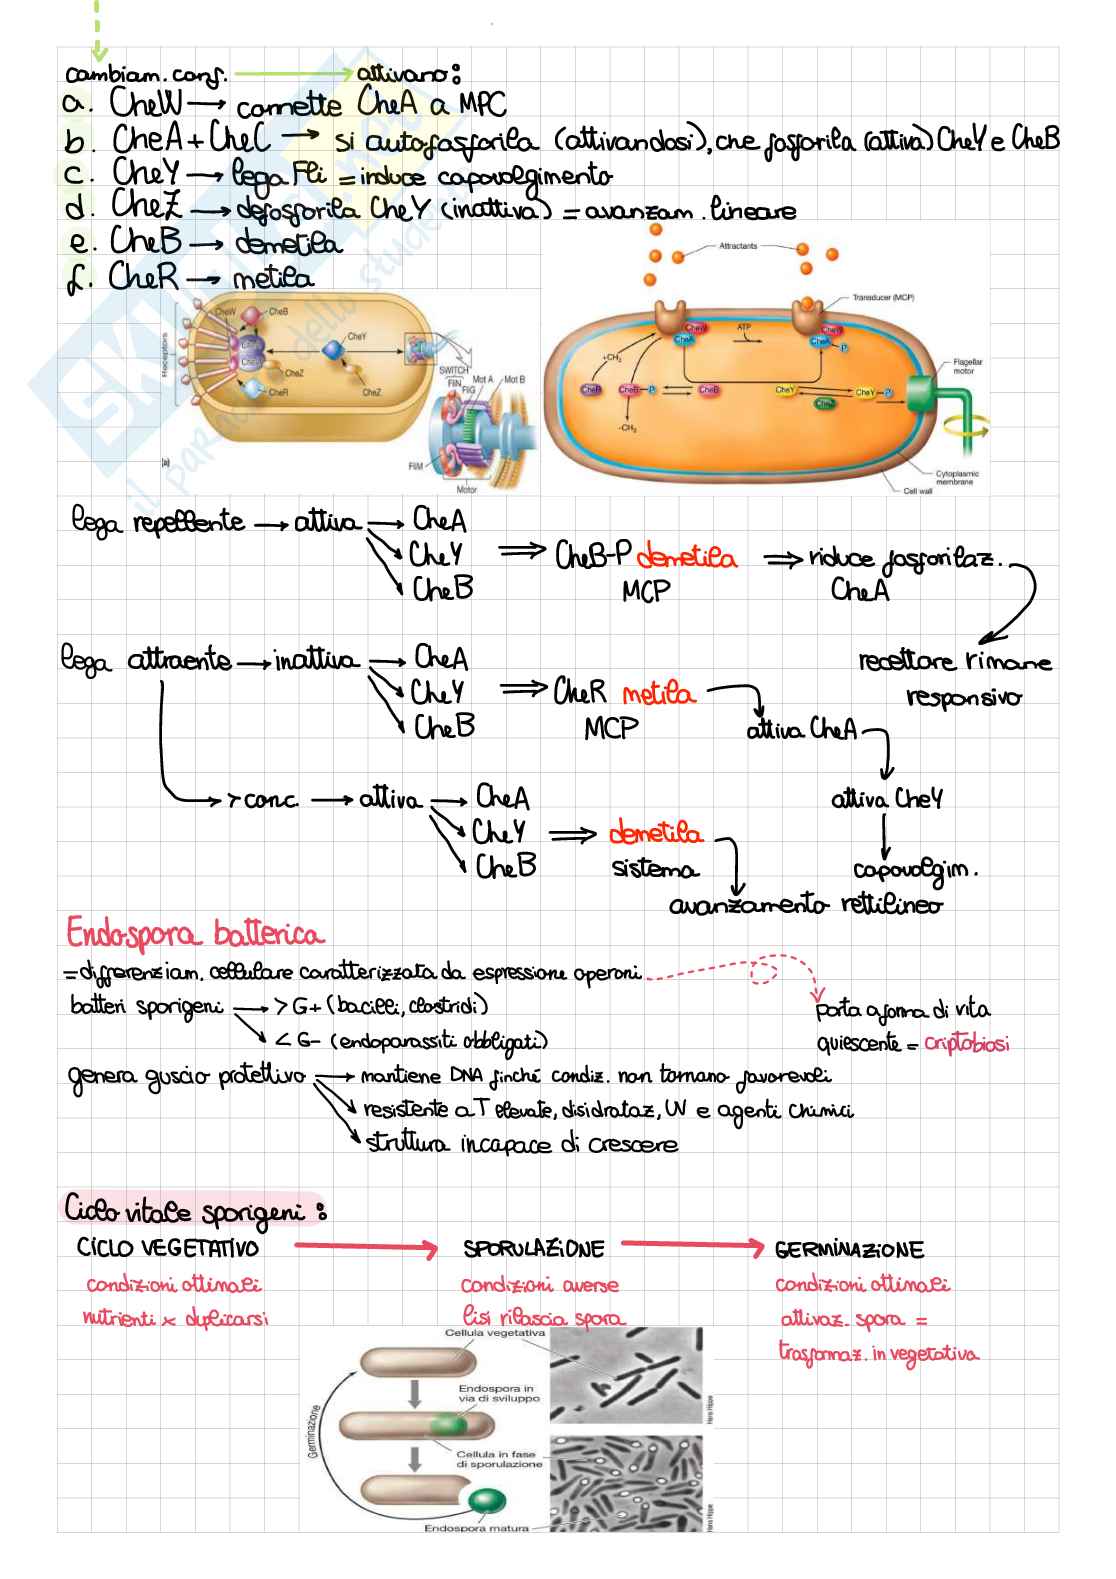 cambiam. conf. → attivano:
a. CheW → connette CheA a MPC
b. CheA+CheC → si autofosforila (attivandosi), che fosforila (attiva) CheY e CheB
c. CheY → lega Fli = induce capovolgimento
d. CheZ → defosforila CheY (inattiva) = avanzam. lineare
e. CheB → demetila
f. CheR → metila
Attractants
Transducer (MCP)
CheW CheW
CheA ATP CheA P
+CH2
CheR CheB P CheB CheY CheY P
CheZ
-CH2
Flagellar
motor
Cytoplasmic
membrane
Cell wall
Receptors
CheW CheB
CheY
CheA
CheZ
CheR CheZ
SWITCH
FliN Mot A Mot B
FliG
FliM
Motor
(a)
lega repellente → attiva → CheA
CheY ⇒ CheB-P demetila ⇒ riduce fosforilaz.
CheB MCP CheA
recettore rimane
responsivo
lega attraente → inattiva → CheA
CheY ⇒ CheR metila
CheB MCP attiva CheA
> conc. → attiva → CheA attiva CheY
CheY ⇒ demetila
CheB sistema capovolgim.
avanzamento rettilineo
Endospora batterica
= differenziam. cellulare caratterizzata da espressione operoni
batteri sporigeni → > G+ (bacilli, clostridi) porta a forma di vita
< G- (endoparassiti obbligati) quiescente = criptobiosi
genera guscio protettivo → mantiene DNA finché condiz. non tornano favorevoli
resistente a T elevate, disidrataz, UV e agenti chimici
struttura incapace di crescere
Ciclo vitale sporigeni:
CICLO VEGETATIVO → SPORULAZIONE → GERMINAZIONE
condizioni ottimali condizioni avverse condizioni ottimali
nutrienti x duplicarsi lisi rilascia spora attivaz. spora =
trasformaz. in vegetativa
Cellula vegetativa
Endospora in
via di sviluppo
Germinazione
Cellula in fase
di sporulazione
Endospora matura
Hans Hippe
Hans Hippe